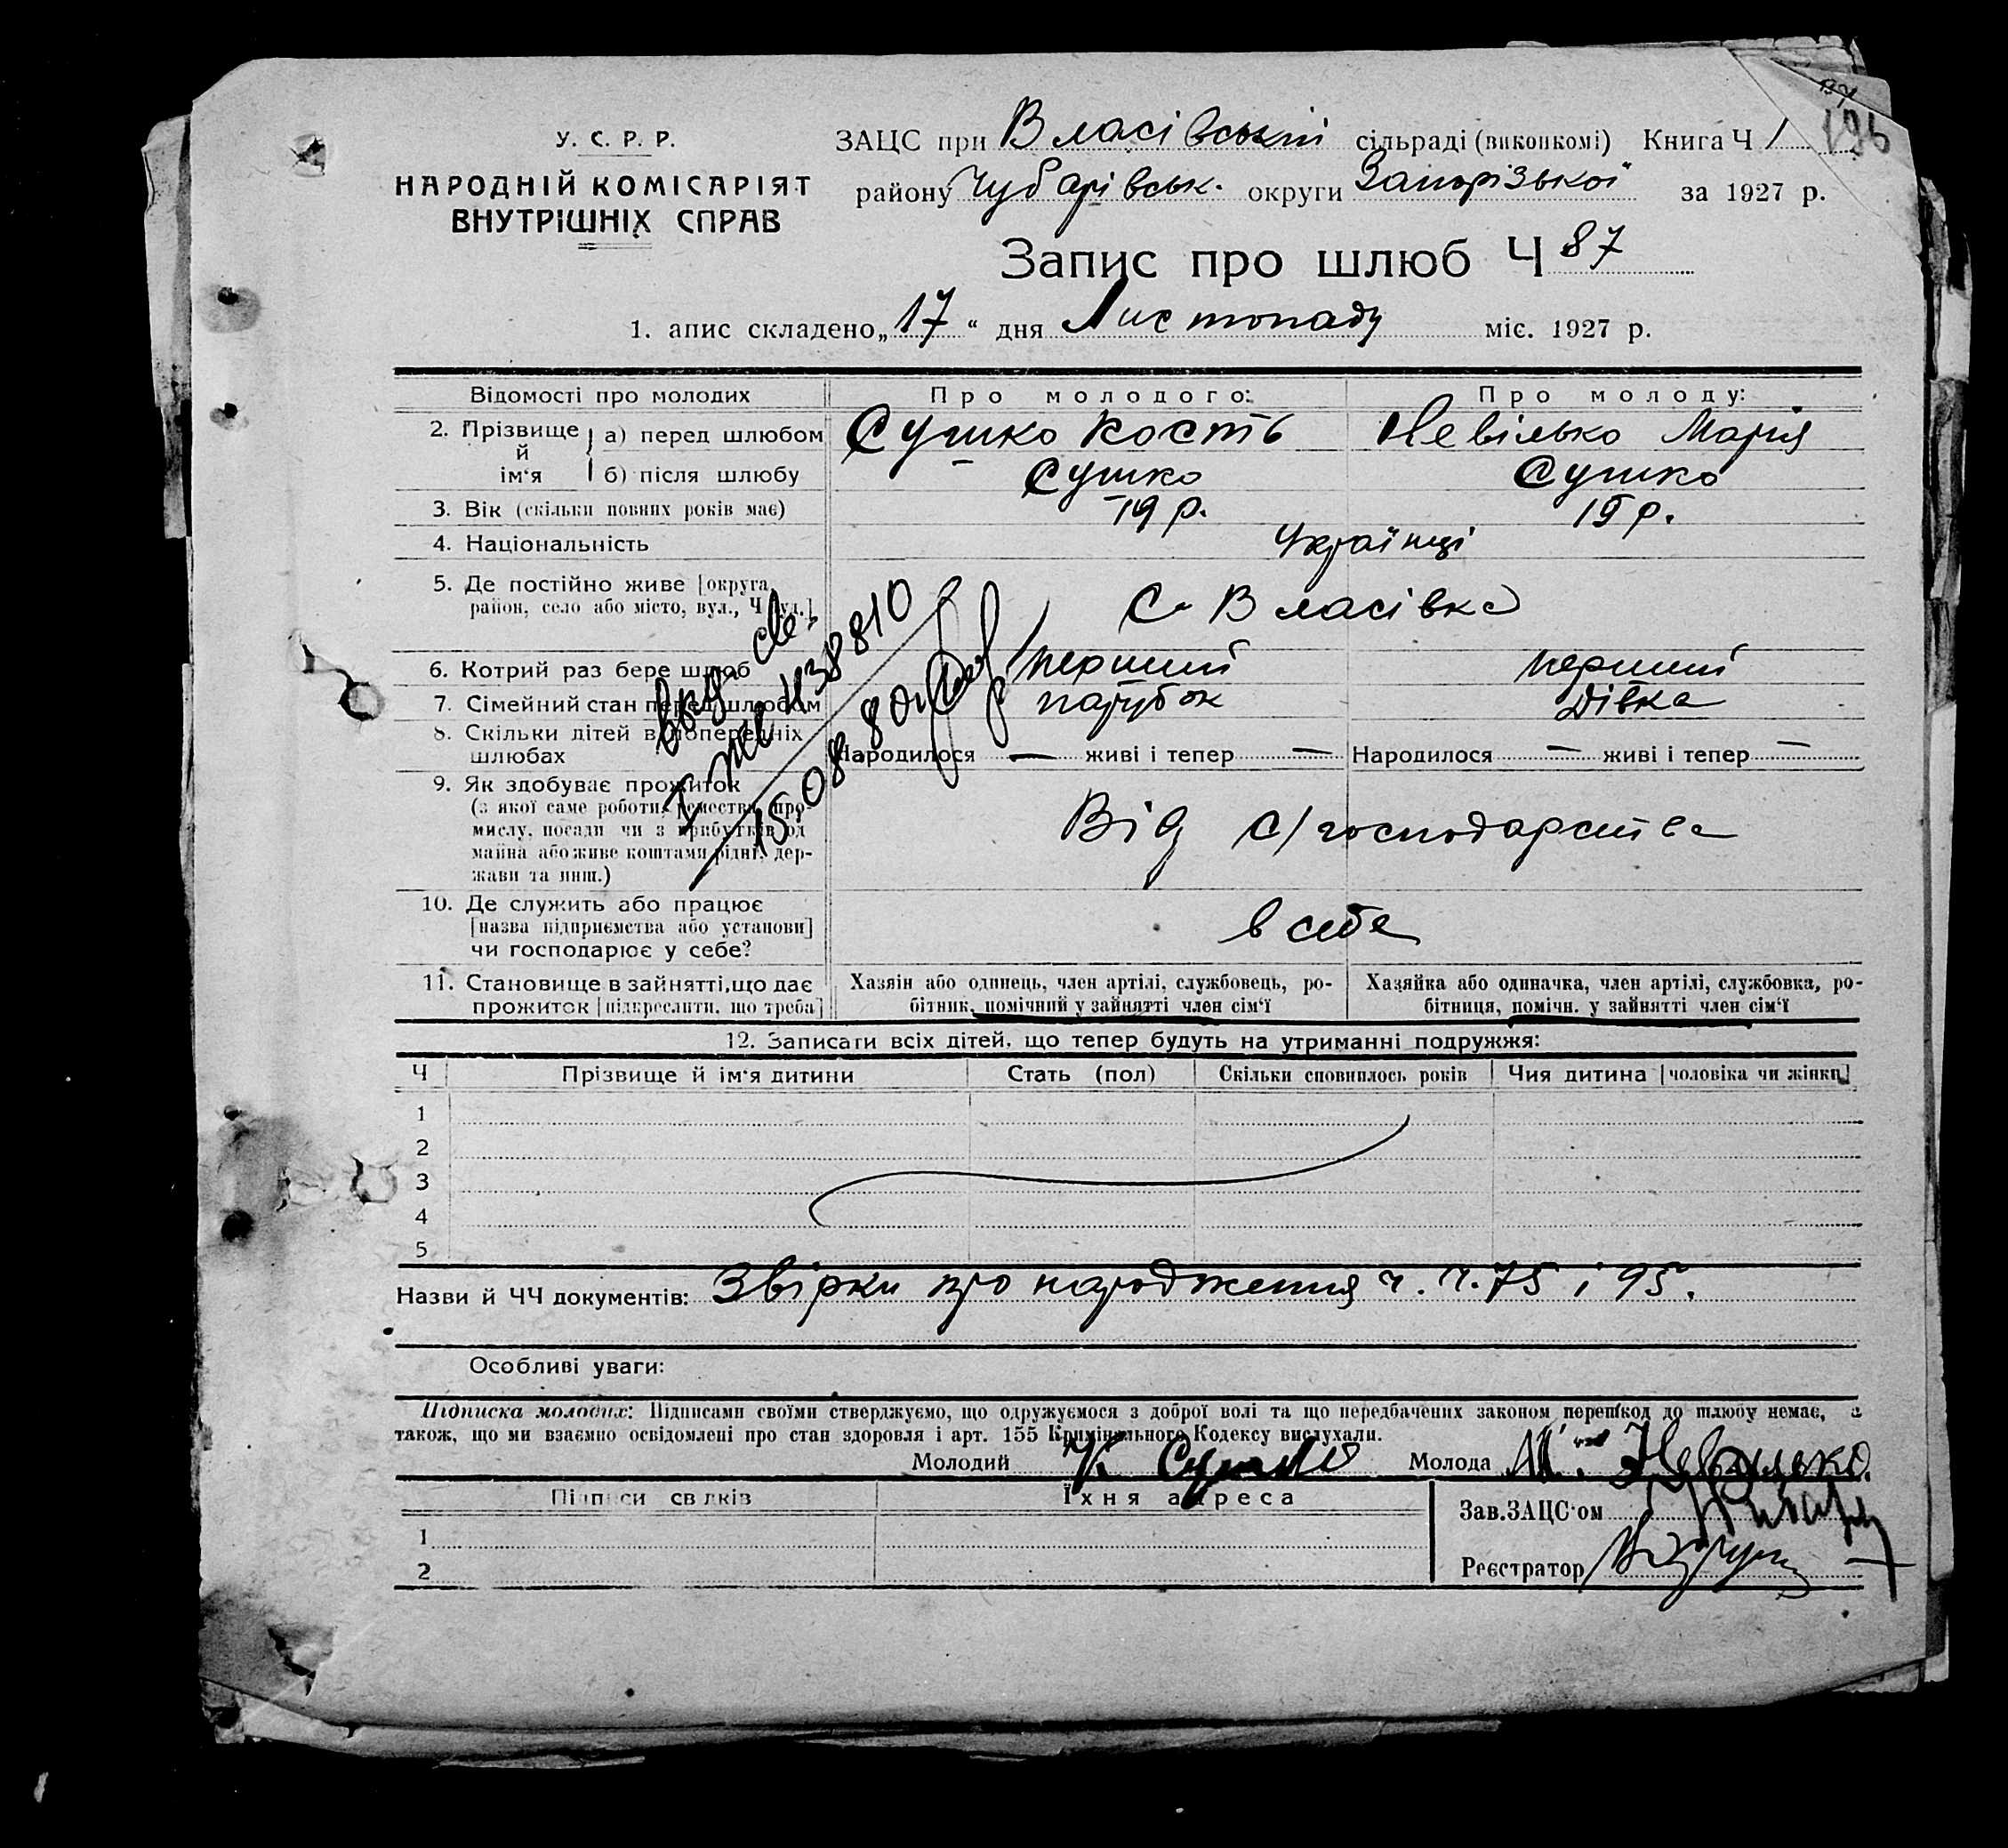 У. С. Р. Р.
НАРОДНІЙ КОМІСАРІЯТ
ВНУТРІШНІХ СПРАВ
ЗАЦС при Власівській сільраді (виконкомі) Книга Ч 1
району Чубарівськ. округи Запорізької за 1927 р.
Запис про шлюб Ч 87
1. апис складено „17“ дня Листопаду міс. 1927 р.
Відомості про молодих Про молодого: Про молоду:
2. Прізвище й ім‘я а) перед шлюбом Сушко Кость Невілько Марія
б) після шлюбу Сушко Сушко
3. Вік (скільки повних років має) 19 р. 19 р.
4. Національність Українці
5. Де постійно живе [округа, район, село або місто, вул., Ч буд.] С. Власівка
6. Котрий раз бере шлюб перший перший
7. Сімейний стан перед шлюбом парубок дівка
8. Скільки дітей в попередніх шлюбах Народилося — живі і тепер — Народилося — живі і тепер —
9. Як здобуває прожиток
(з якої саме роботи, ремества, про-
мислу, посади чи з прибутків од
майна або живе коштами рідні, дер-
жави та инш.)
Від с/господарства
10. Де служить або працює
[назва підприємства або установи]
чи господарює у себе?
в себе
11. Становище в зайнятті, що дає
прожиток [підкреслити, що треба]
Хазяїн або одинець, член артілі, службовець, ро-
бітник, помічний у зайнятті член сім‘ї
Хазяйка або одиначка, член артілі, службовка, ро-
бітниця, помічн. у зайнятті член сім‘ї
438810
15.08.80
12. Записати всіх дітей, що тепер будуть на утриманні подружжя:
Ч Прізвище й ім‘я дитини Стать (пол) Скільки сповнилось років Чия дитина [чоловіка чи жінки]
1
2
3
4
5
Назви й ЧЧ документів: Звірки про народження ч. ч. 75 і 95.
Особливі уваги:
Підписка молодих: Підписами своїми стверджуємо, що одружуємося з доброї волі та що передбачених законом перешкод до шлюбу немає, а
також, що ми взаємно освідомлені про стан здоровля і арт. 155 Кримінального Кодексу вислухали.
Молодий К Сушко Молода М. Невілько
Підписи свідків Їхня адреса
1
2
Зав. ЗАЦС‘ом
Реєстратор